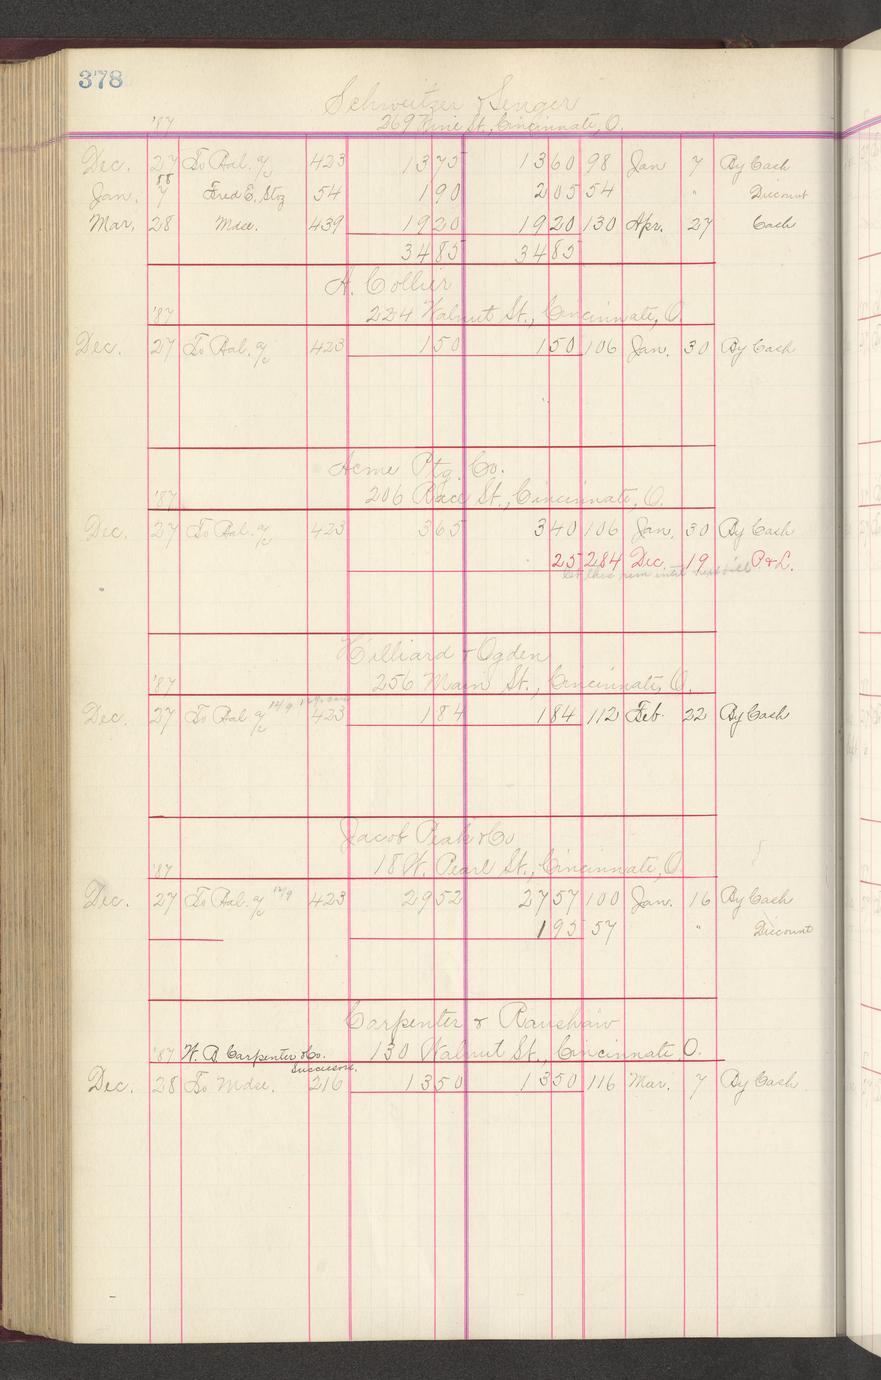 378
Schweitzer & Senger
'87 269 Vine St., Cincinnate, O.
Dec. 27 To Bal. a/c 423 1375 1360 98 Jan 7 By Cash
'88
Jan. 7 Fred E. Stoz 54 190 205 54 " Discount
Mar. 28 Mdse. 439 1920 1920 130 Apr. 27 Cash
3485 3485
A. Collier
'87 224 Walnut St., Cincinnate, O.
Dec. 27 To Bal. a/c 423 150 150 106 Jan. 30 By Cash
Acme Ptg. Co.
'87 206 Race St., Cincinnate, O.
Dec. 27 To Bal. a/c 423 365 340 106 Jan. 30 By Cash
25 284 Dec. 19 P. & L.
this until
Hilliard & Ogden
'87 256 Main St., Cincinnate, O.
Dec. 27 To Bal a/c 12/9 423 184 184 112 Feb. 22 By Cash
Jacob Peak & Co
'87 18 W. Pearl St., Cincinnate, O
Dec. 27 To Bal. a/c 12/9 423 2952 2757 100 Jan. 16 By Cash
195 57 " Discount
Carpenter & Ranshaw
'87 W. B. Carpenter & Co. 130 Walnut St., Cincinnate O.
Successors.
Dec. 28 To Mdse. 216 1350 1350 116 Mar. 7 By Cash